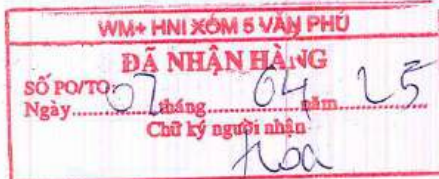 WM+ HNI XÓM 5 VĂN PHÚ
ĐÃ NHẬN HÀNG
SỐ PO/TO:
Ngày 07 tháng 04 năm 25
Chữ ký người nhận
Hoa